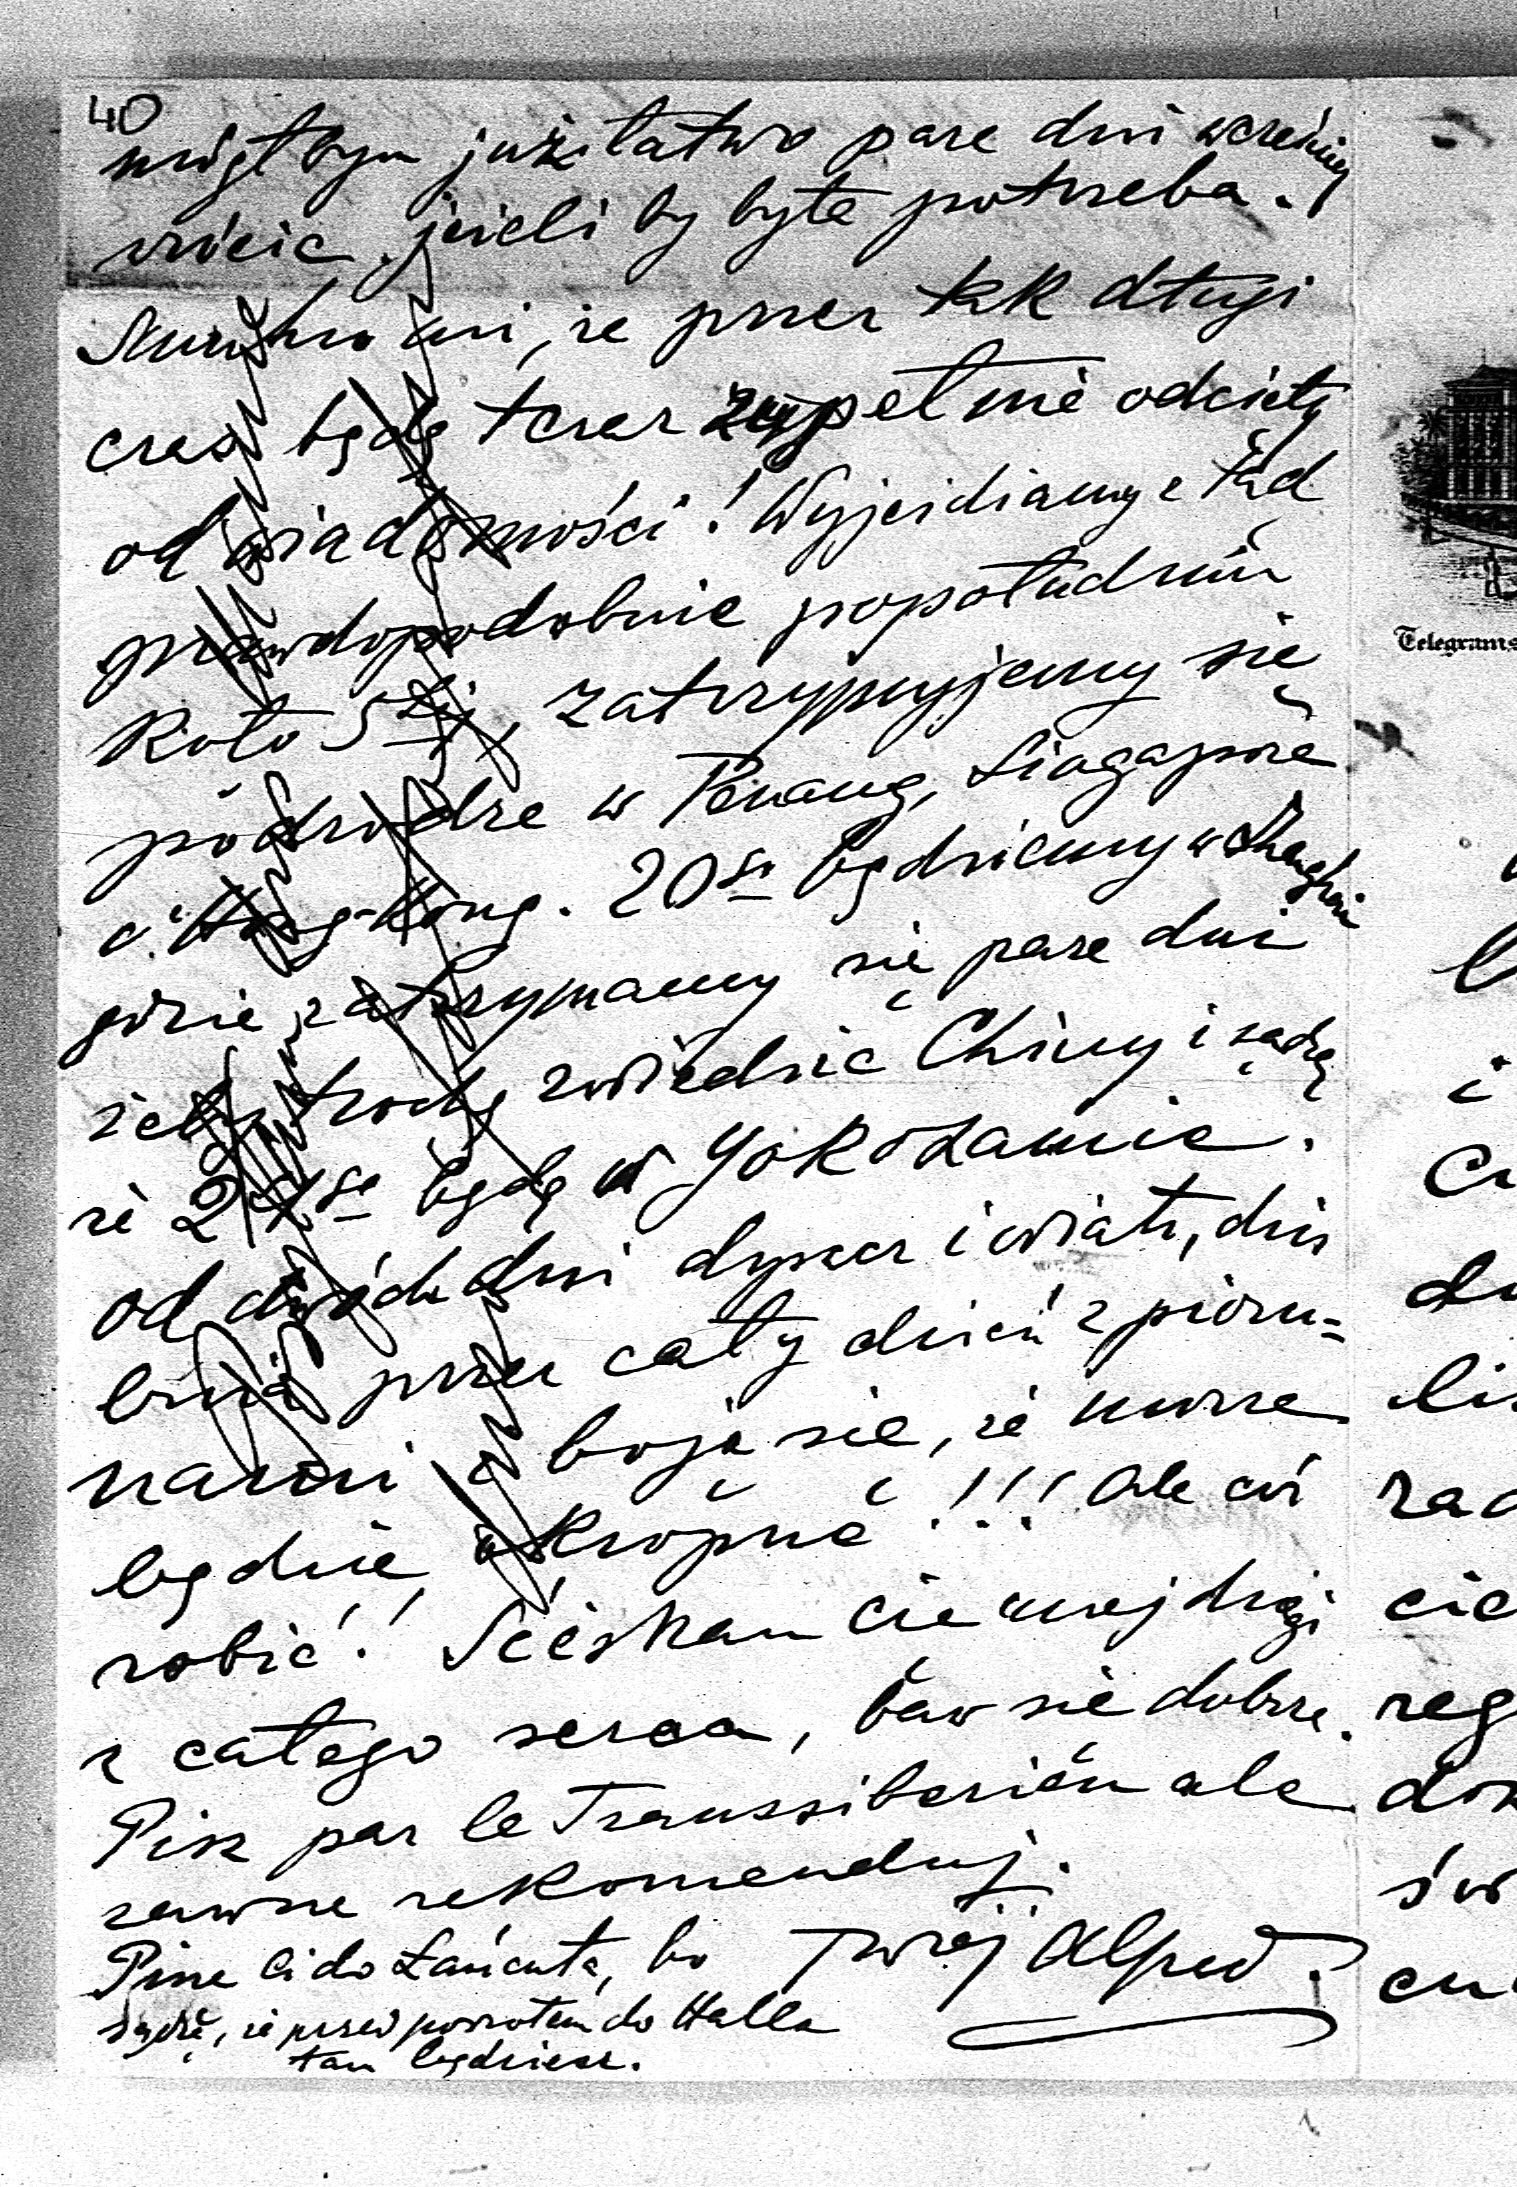 40
mógłbym już łatwo pare dni wcześniej
wrócić, jeżeli by była potrzeba.
Smutno mi, że przez tak długi
czas będę teraz zupełnie odcięty
od wiadomości! Wyjeżdżamy z tąd
prawdopodobnie popołudniu
koło 5tej, zatrzymujemy się
podrodze w Penang, Singapore
i Hong-Kong. 20go będziemy w Shanghai
gdzie zatrzymamy się pare dni
żeby trochę zwiedzić Chiny i sądzę
że 27go będę w Yokohamie.
Od dwóch dni dyszcz i wiatr, dziś
burza przez cały dzień z pioru=
nami i boję się, że morze
będzie okropne!!! Ale cóż
robić! Ściskam cię mój drogi
z całego serca, baw się dobrze.
Pisz par le Transsiberien ale
zawsze rekomenduj.
Twój Alfred.
Pisze Ci do Łańcuta, bo
sądzę, że przed powrotem do Halla
tam będziesz.
Telegrams
i